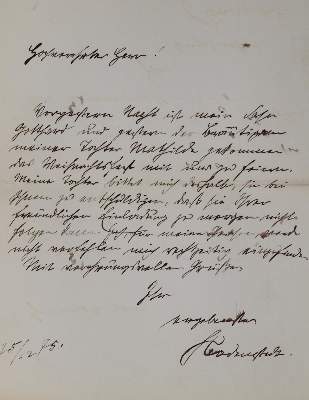 Hochverehrter Herr!
Vorgestern Nacht ist mein Sohn
Gotthard und gestern der Bräutigam
meiner Tochter Mathilde gekommen
das Weihnachtsfest mit uns zu feiern.
Meine Tochter bittet mich deshalb, sie bei
Ihnen zu entschuldigen, daß sie Ihrer
freundlichen Einladung zu morgen nicht
folgen kann. Ich, für meine Person, werde
nicht verfehlen mich rechtzeitig einzufinden.
Mit verehrungsvollen Grüßen
Ihr
ergebenster
Bodenstedt.
25/12 75.